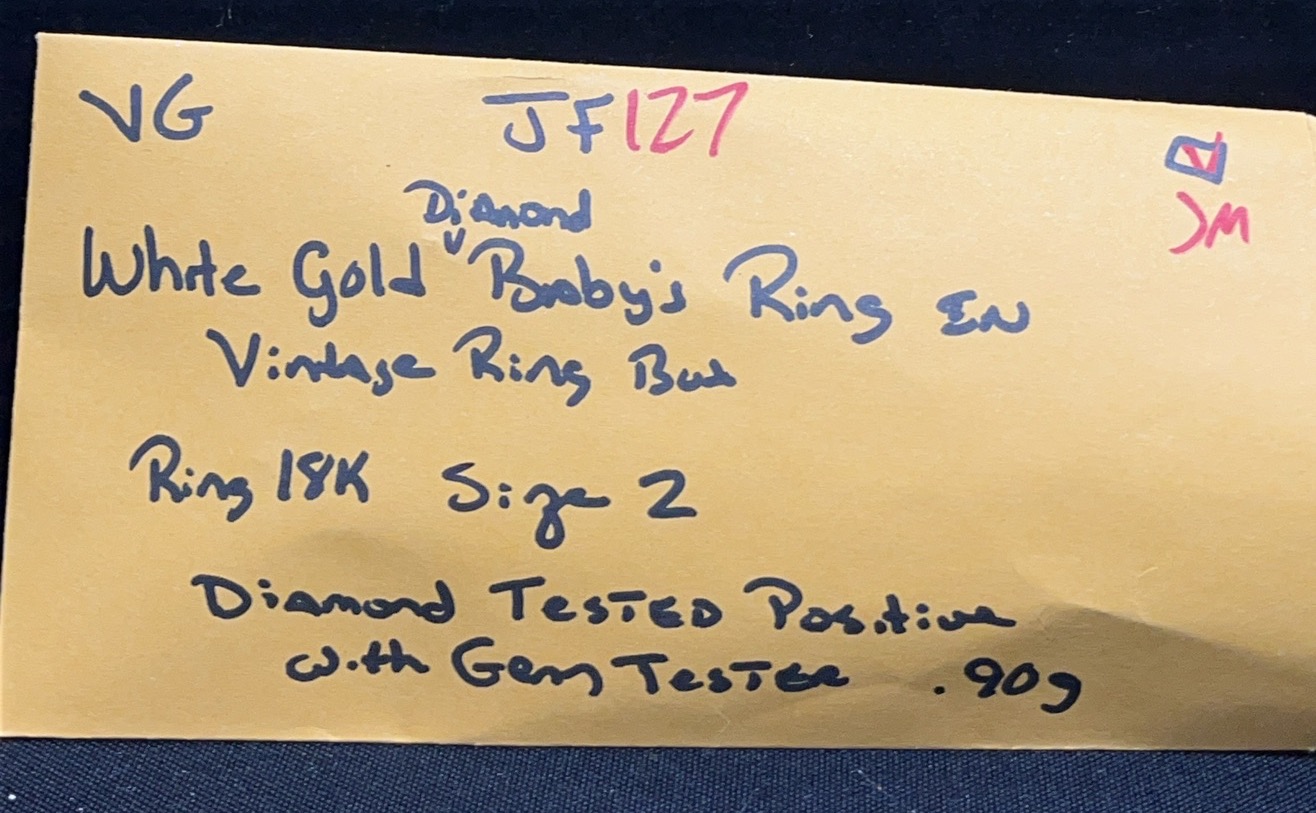 VG JF127
JM
Diamond
White Gold Baby's Ring IN
Vintage Ring Box
Ring 18K Size 2
Diamond TESTED Positive
with Gem TESTER .90g